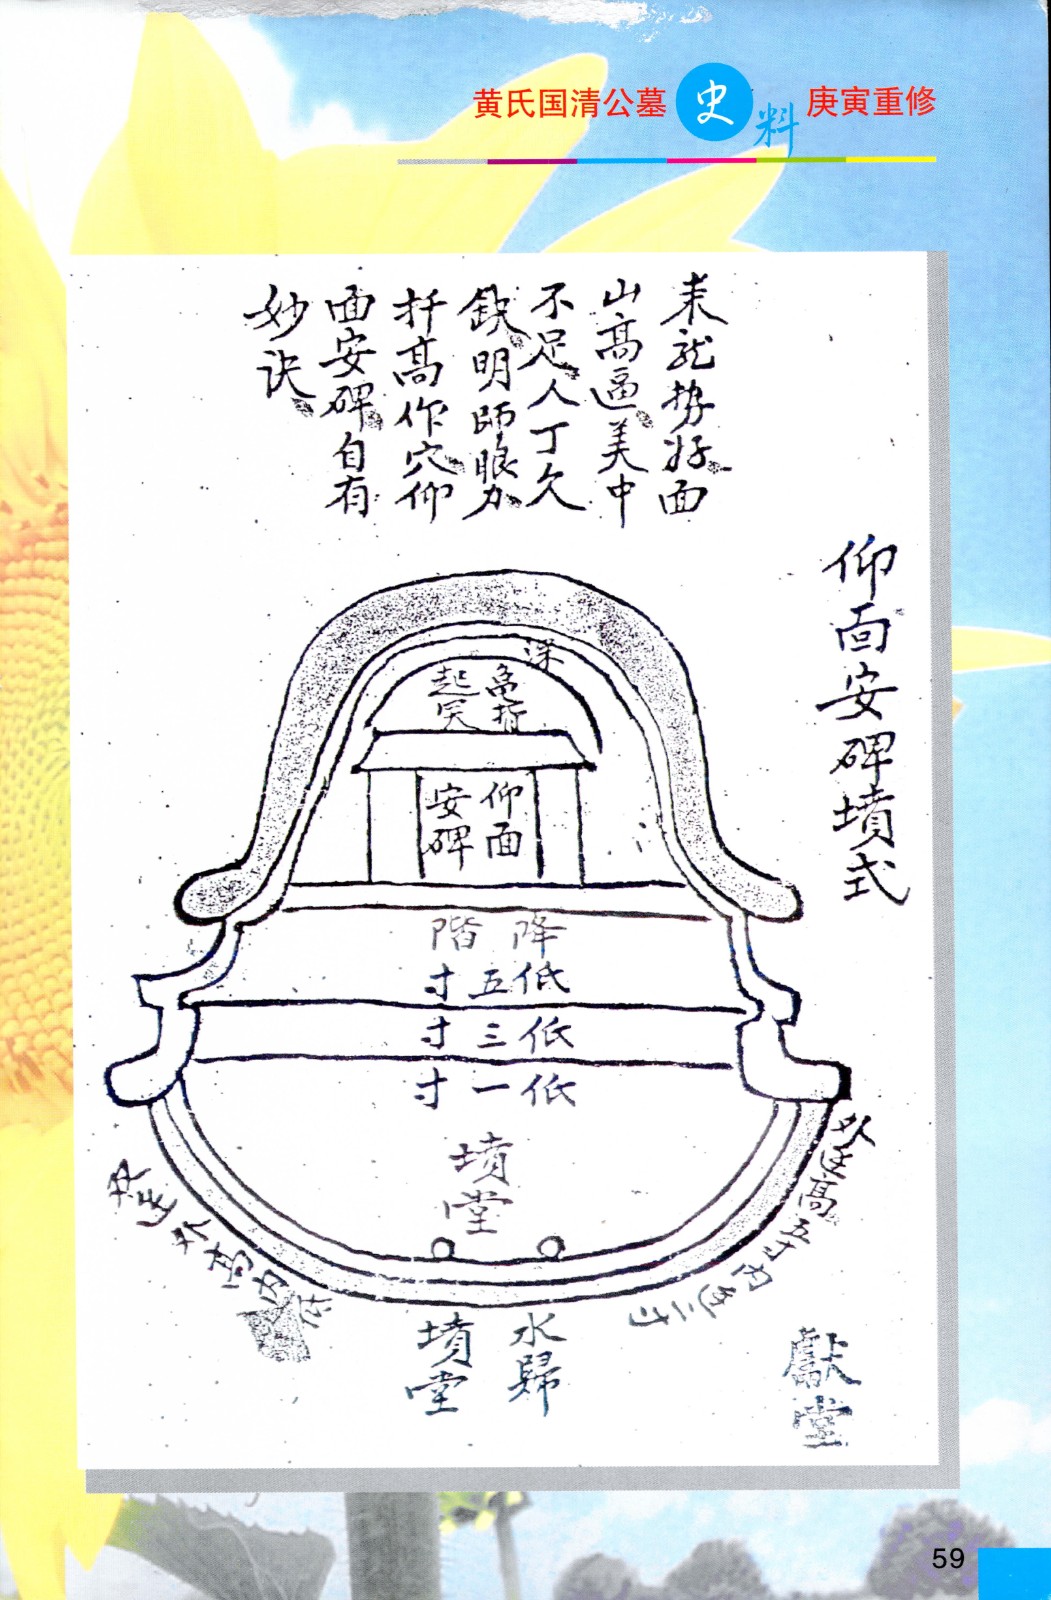 黄氏国清公墓 史料 庚寅重修
来龙势好面
山高逼美中
不足人丁欠
缺明师眼力
扦高作穴仰
面安碑自有
妙诀
仰面安碑墳式
深
起突
仰面
安碑
降階
低五寸
低三寸
低一寸
墳堂
外 高五寸内 二寸
外高内
水歸
墳堂
獻堂
59